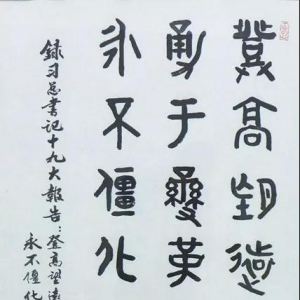 登高望遠
勇于變革
永不僵化
録习总书记十九大报告：登高望遠
永不僵化